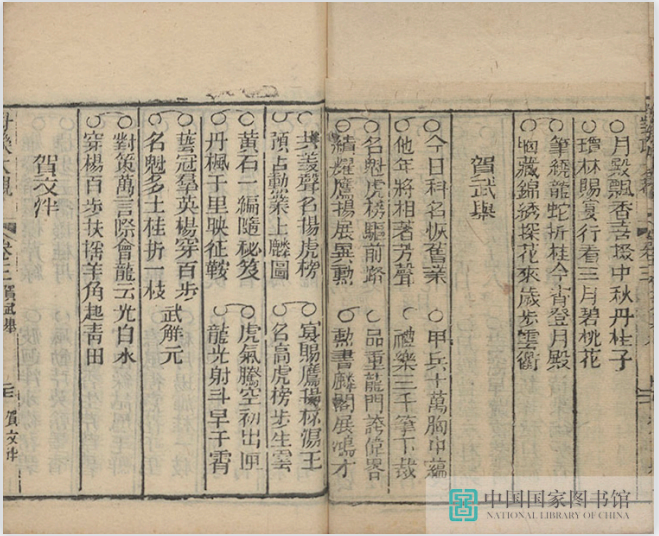 月殿飄香喜掇中秋丹桂子
瓊林賜宴行看三月碧桃花
筆繞龍蛇折桂今宵登月殿
胸藏錦綉探花來歲步雲衢
賀武舉
今日科名恢舊業 甲兵十萬胸中蘊
他年將相著芳聲 禮樂三千筆下裁
名魁虎榜驅前路 品重龍門誇偉畧
績耀鷹揚展異勳 勳書麟閣展鴻才
共羨聲名揚虎榜 宴賜鷹揚杯湯
預占勳業上麟圖 名高虎榜步生雲
黃石一編隨秘笈 虎氣騰空初出匣
丹楓千里映征鞍 龍光射斗早干霄
武解元
藝冠羣英楊穿百步
名魁多士桂折一枝
對策萬言際會龍云光白水
穿楊百步扶搖羊角起青田
賀文泮
大觀 卷三 賀武舉 賀文泮
中国国家图书馆
NATIONAL LIBRARY OF CHINA